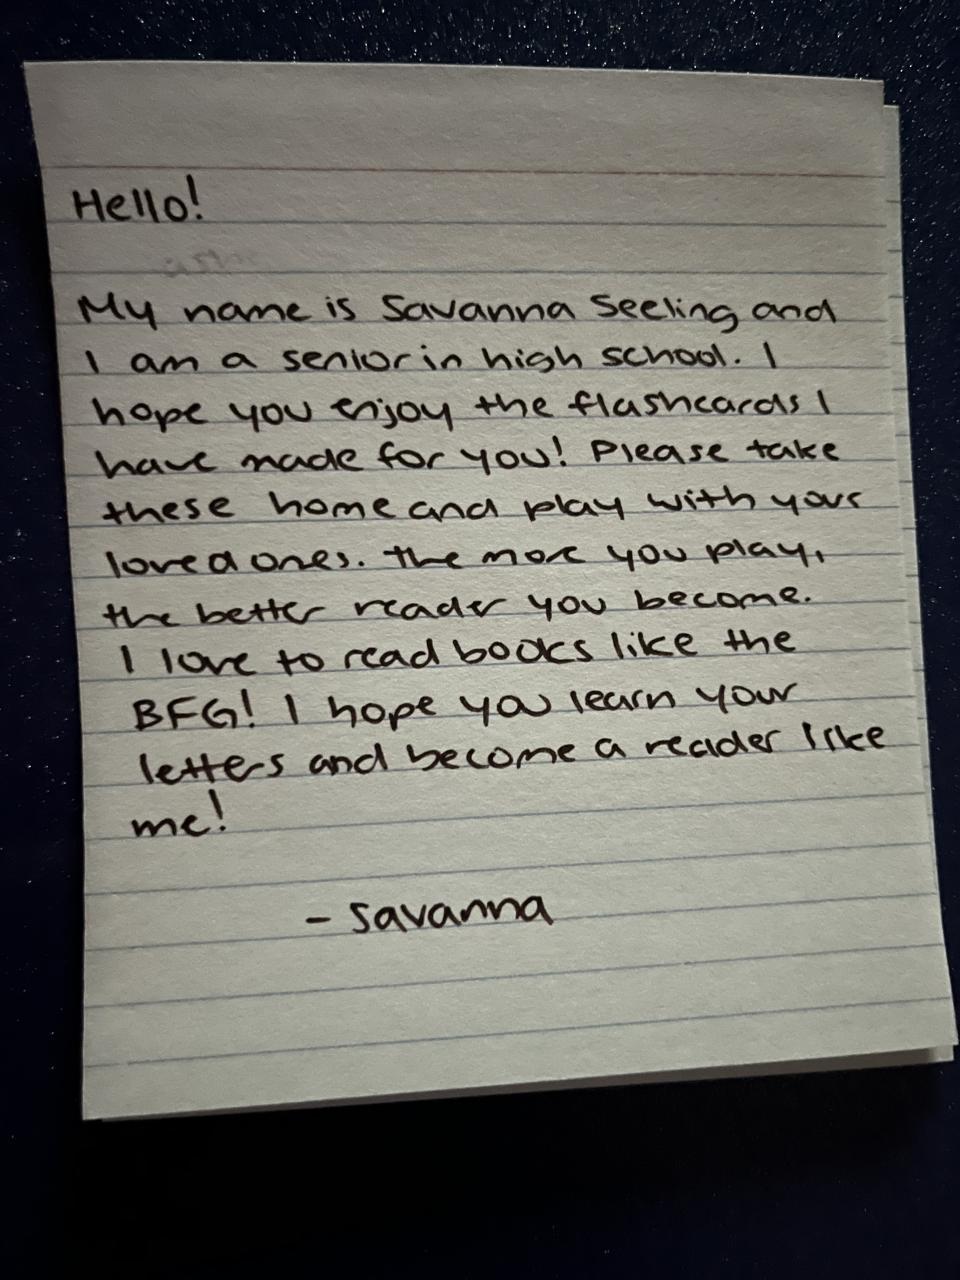 Hello!
My name is Savanna Seeling and
I am a senior in high school. I
hope you enjoy the flashcards I
have made for you! Please take
these home and play with your
loved ones. The more you play,
the better reader you become.
I love to read books like the
BFG! I hope you learn your
letters and become a reader like
me!
- Savanna